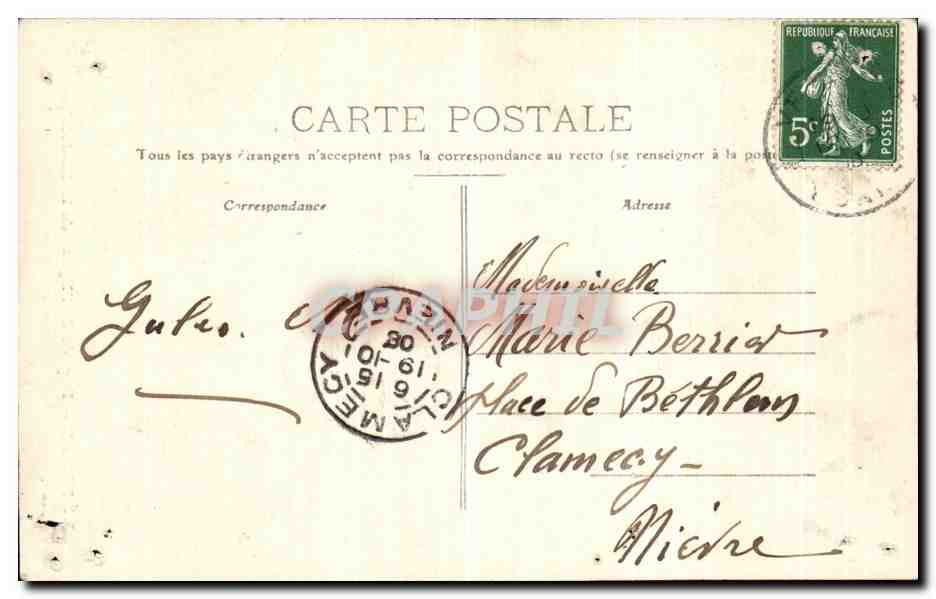 REPUBLIQUE FRANÇAISE
5c
POSTES
CARTE POSTALE
Tous les pays étrangers n'acceptent pas la correspondance au recto (se renseigner à la poste
Correspondance
Adresse
Mademoiselle
Marie Berrier
Place de Béthléem
Clamecy
Nièvre
Jules. M
CLAMECY
NIEVRE
15
6
19-10
08
CPAPHIL